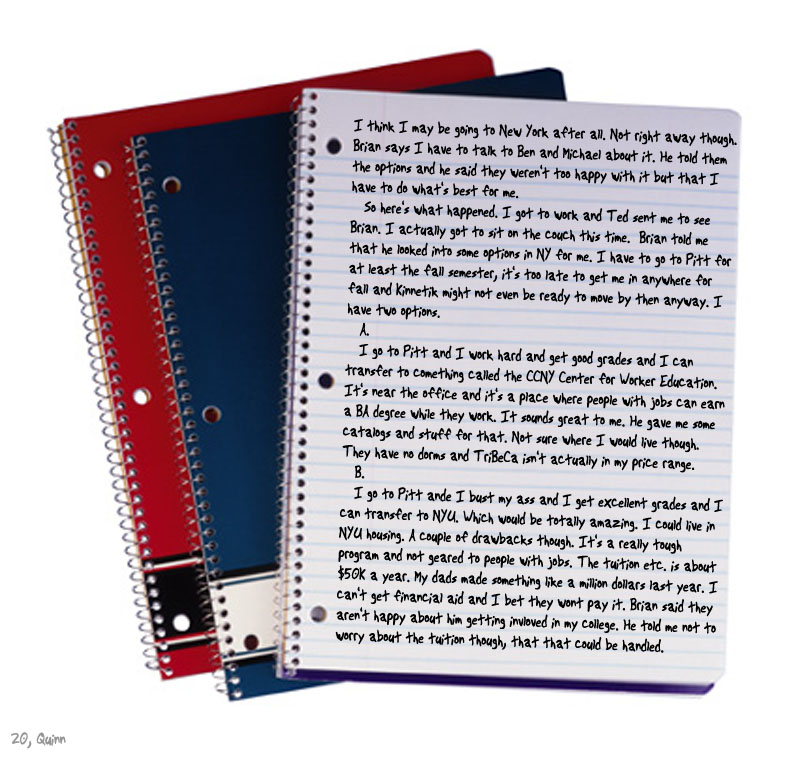 I think I may be going to New York after all. Not right away though.
Brian says I have to talk to Ben and Michael about it. He told them
the options and he said they weren't too happy with it but that I
have to do what's best for me.
So here's what happened. I got to work and Ted sent me to see
Brian. I actually got to sit on the couch this time. Brian told me
that he looked into some options in NY for me. I have to go to Pitt for
at least the fall semester, it's too late to get me in anywhere for
fall and Kinnetik might not even be ready to move by then anyway. I
have two options.
A.
I go to Pitt and I work hard and get good grades and I can
transfer to comething called the CCNY Center for Worker Education.
It's near the office and it's a place where people with jobs can earn
a BA degree while they work. It sounds great to me. He gave me some
catalogs and stuff for that. Not sure where I would live though.
They have no dorms and TriBeCa isn't actually in my price range.
B.
I go to Pitt ande I bust my ass and I get excellent grades and I
can transfer to NYU. Which would be totally amazing. I could live in
NYU housing. A couple of drawbacks though. It's a really tough
program and not geared to people with jobs. The tuition etc. is about
$50K a year. My dads made something like a million dollars last year. I
can't get financial aid and I bet they wont pay it. Brian said they
aren't happy about him getting invloved in my college. He told me not to
worry about the tuition though, that that could be handled.
20, Quinn